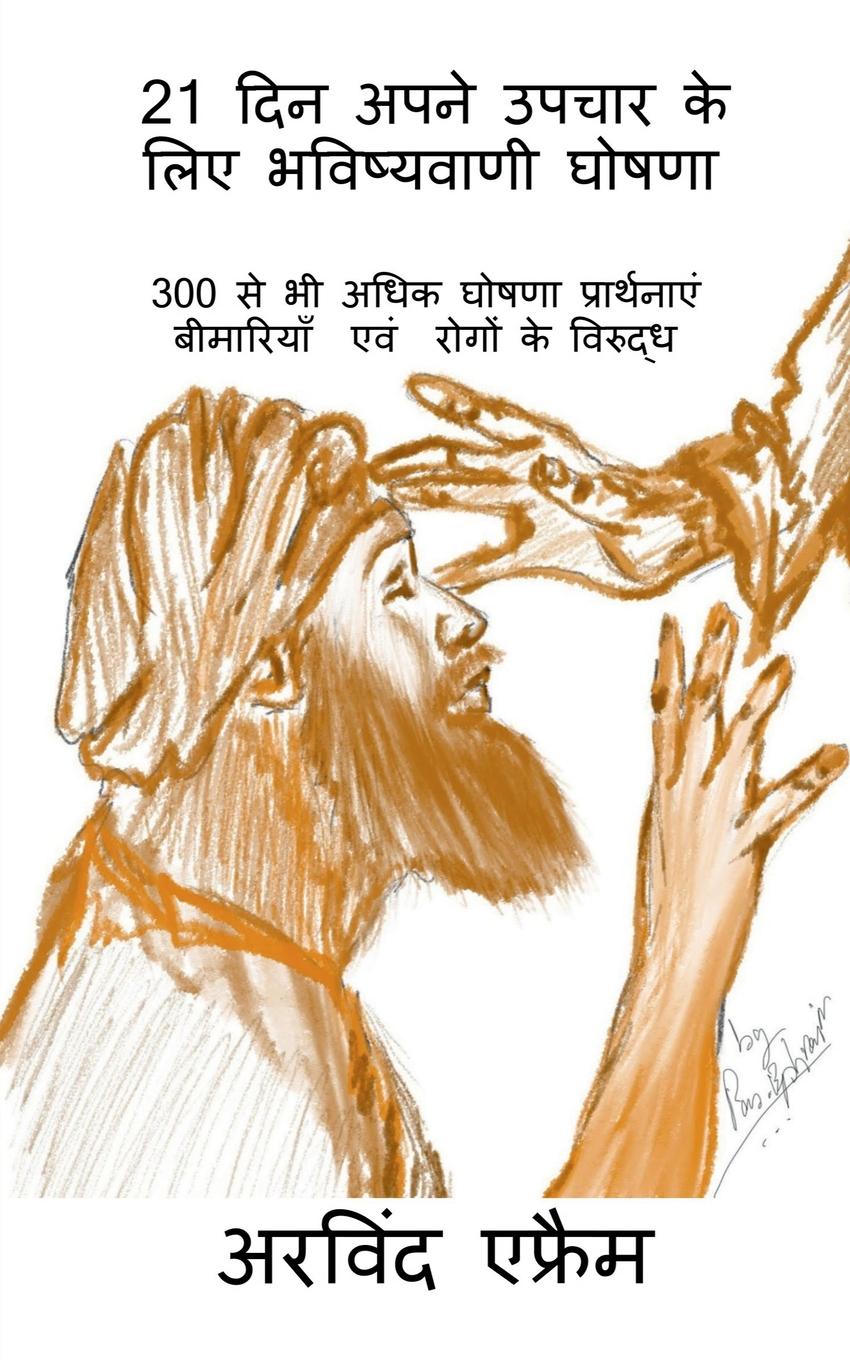 21 दिन अपने उपचार के
लिए भविष्यवाणी घोषणा
300 से भी अधिक घोषणा प्रार्थनाएं
बीमारियाँ एवं रोगों के विरुद्ध
by
अरविंद एफ्रैम